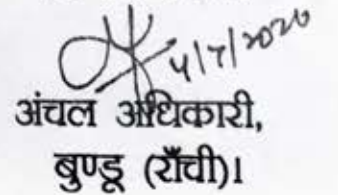 4/7/2020
अंचल अधिकारी,
बुण्डू (राँची)।